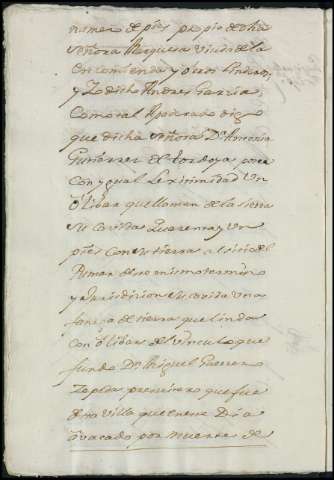 numer de pies propio de dha
señora Marquesa Viuda de la
Encomienda y otros linderos
y Yo dicho Andres Garcia
Como tal Apoderado digo
que dicha señora Dª Antonia
Gutierrez de Tordoya posee
Con ygual Lexitimidad Un
Olibar que llaman de la sierra
su cavida quarenta y un
pies con su tierra al sitio del
de este mismo termino
y Jurisdicion su cavida una
fanega de tierra que linda
con olibar del vinculo que
fundo Dn Miguel Guerrero
Zapata presvitero que fue
de esta Villa que entre Dia
a vacado por muerte de